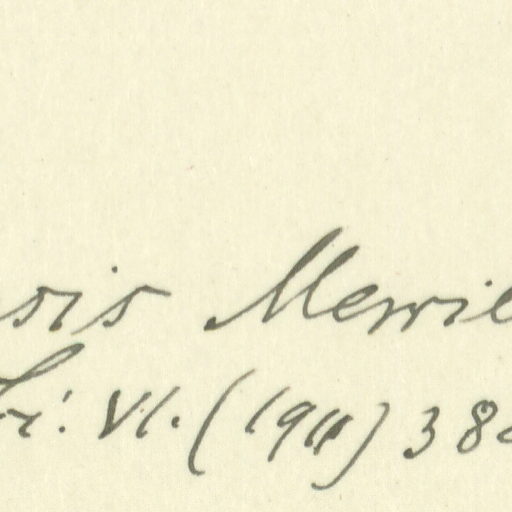 nsis Merrie
Sci. VI. (1911) 38